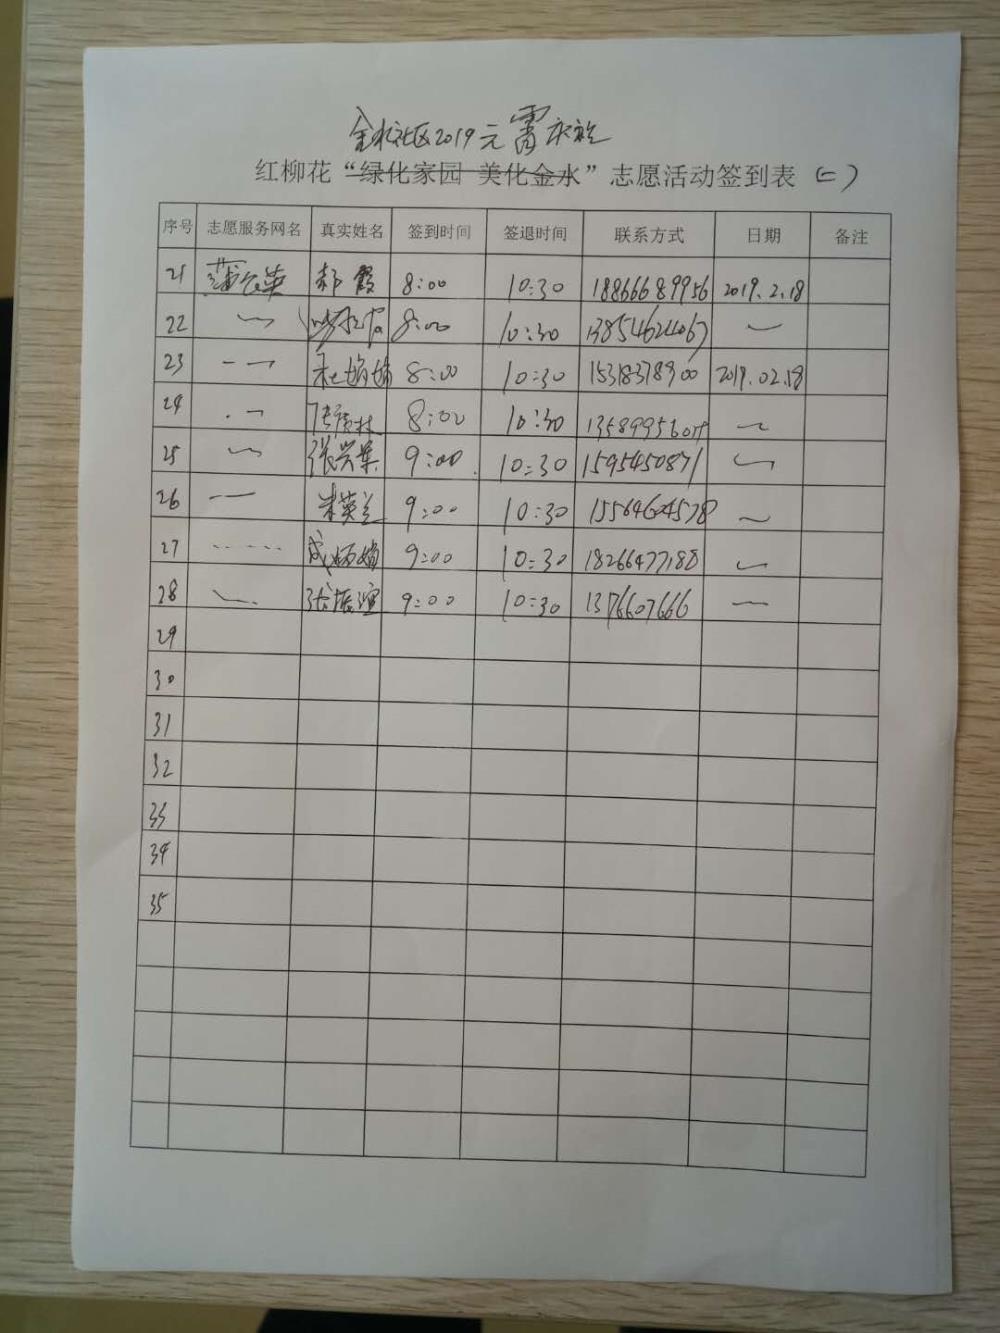 金水社区2019元宵
红柳花“绿化家园 美化金水”志愿活动签到表(二)
序号 志愿服务网名 真实姓名 签到时间 签退时间 联系方式 日期 备注
21 郝霞 8:00 10:30 18866689956 2019.2.18
22 〃 8:00 10:30 13854624067 〃
23 〃 杜娟娟 8:00 10:30 15318378900 2019.02.18
24 〃 8:00 10:30 〃
25 〃 张兴集 9:00 10:30 1595450871 〃
26 〃 米英兰 9:00 10:30 15564604578 〃
27 〃 9:00 10:30 18266477188 〃
28 〃 张振 9:00 10:30 1376607666 〃
29
30
31
32
33
34
35